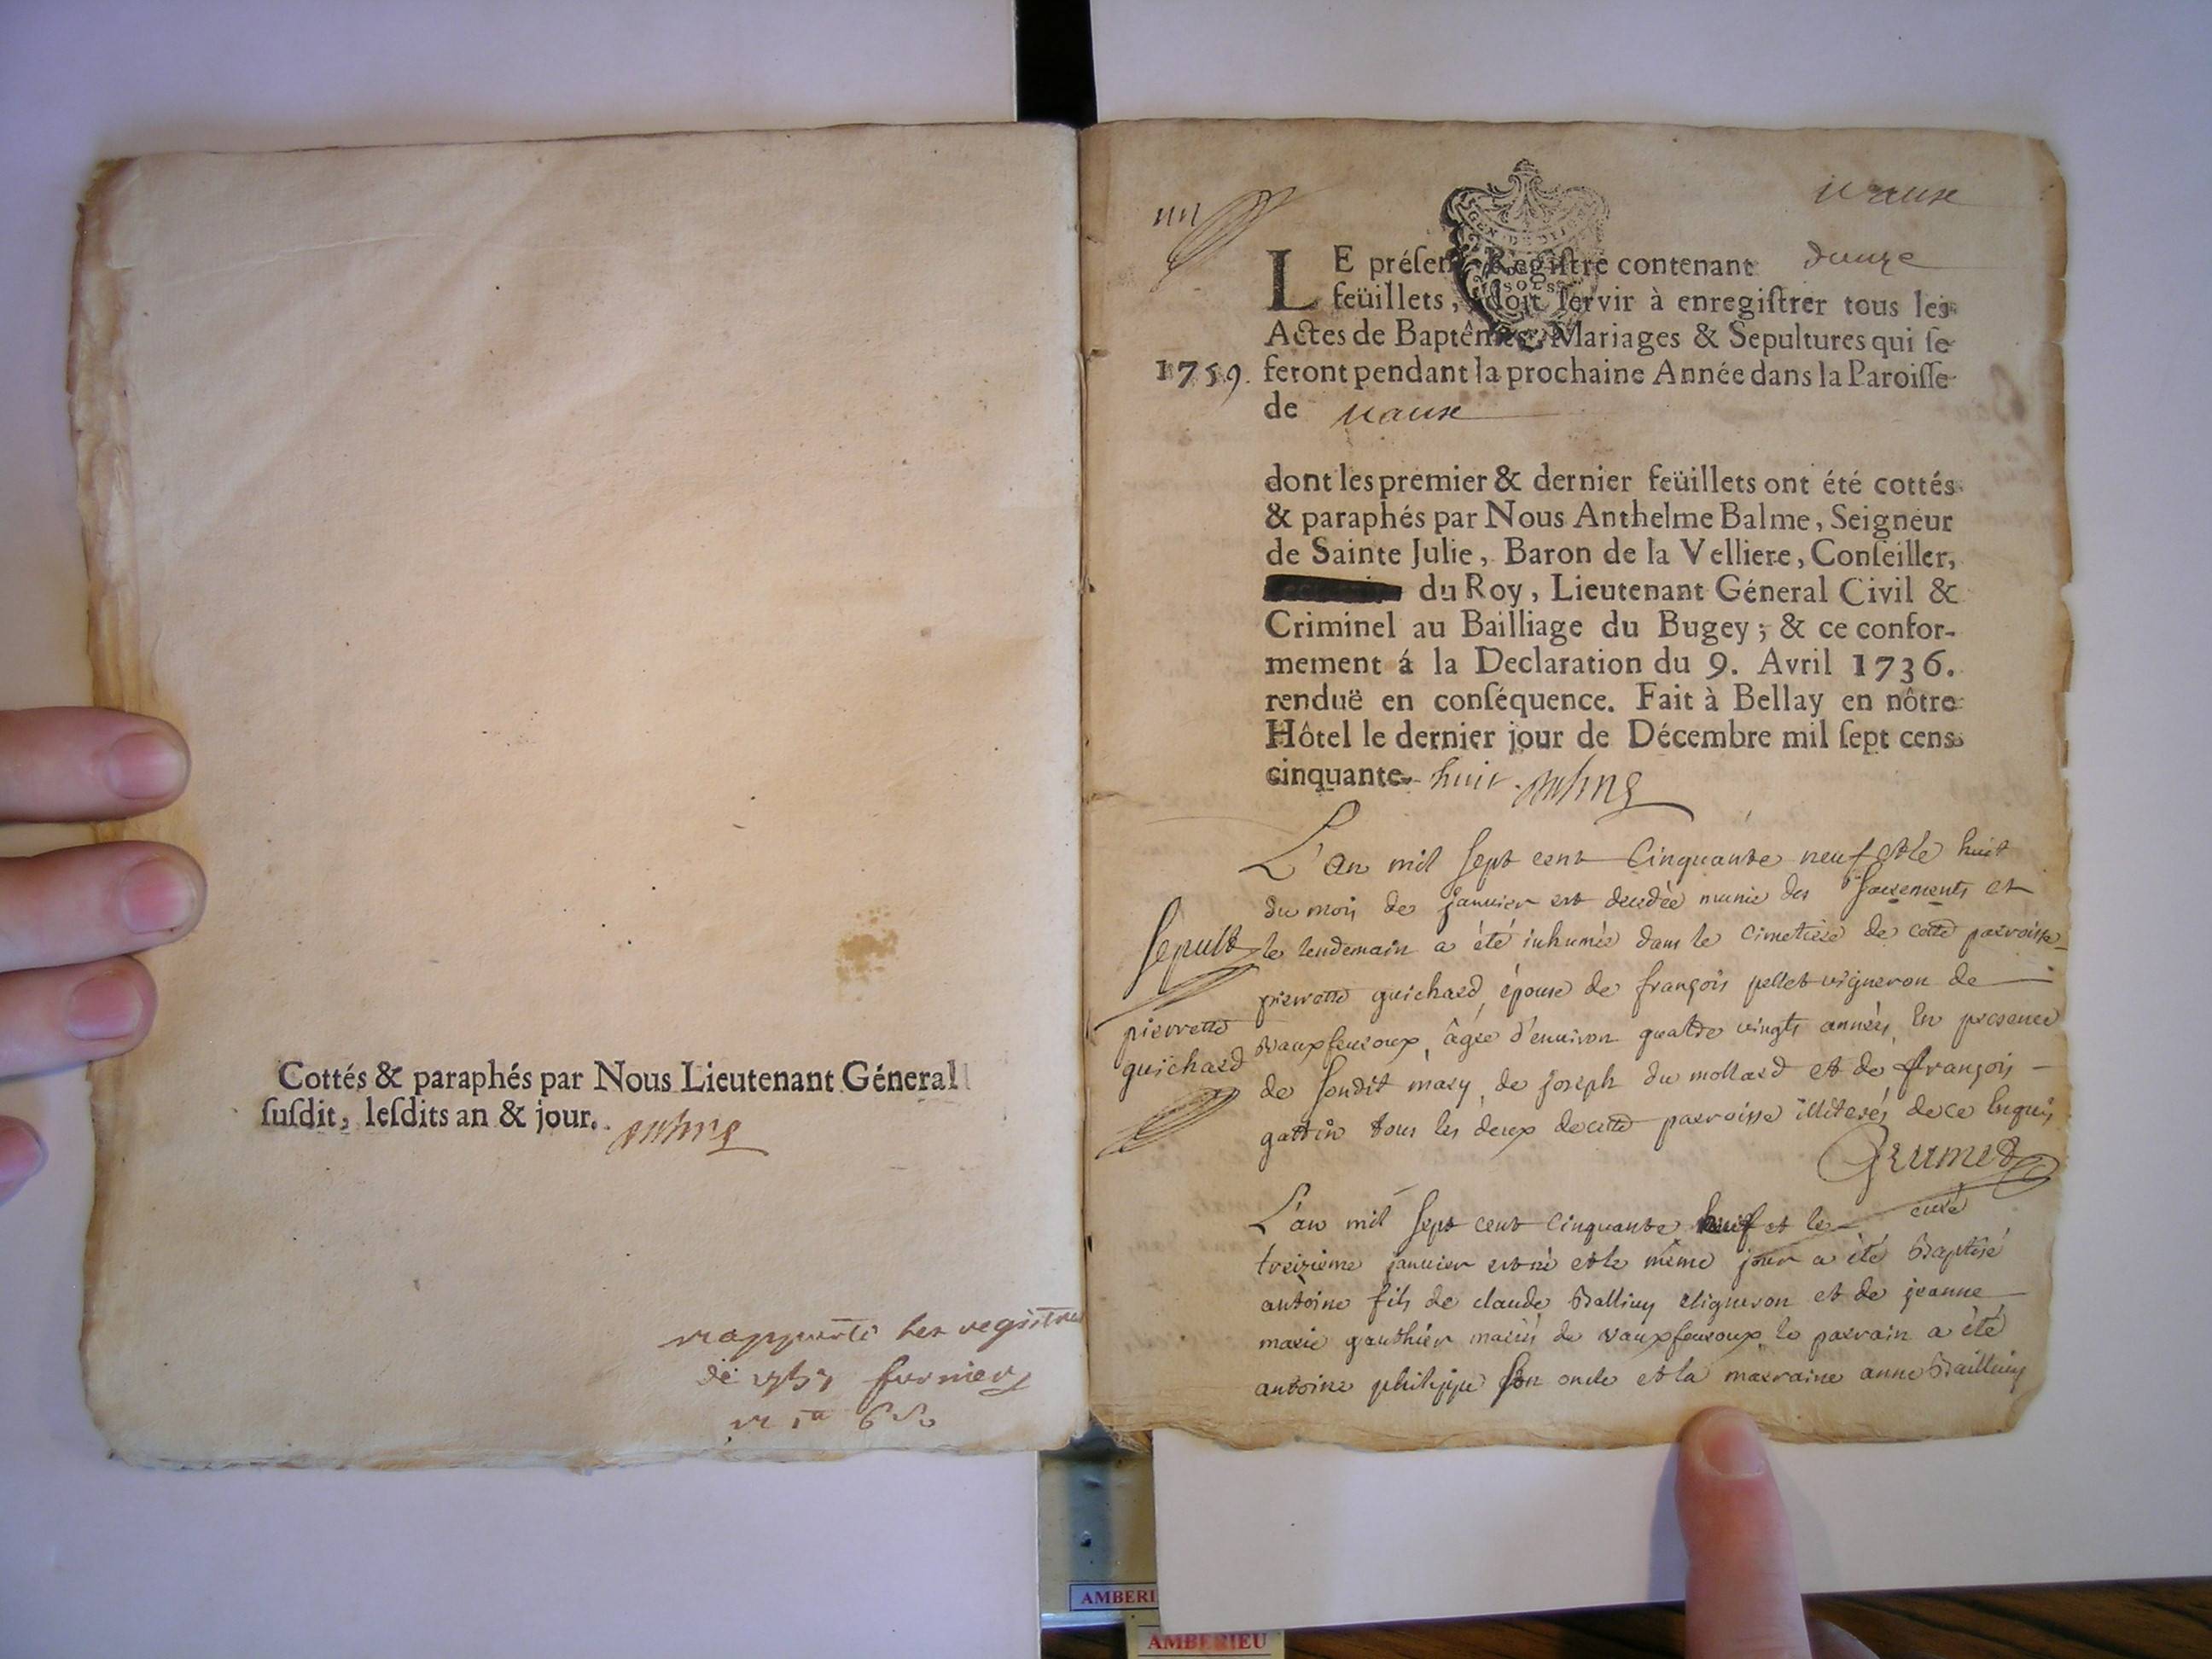 Cottés & paraphés par Nous Lieutenant Géneral
ſuſdit, leſdits an & jour.
les registres
de
vaux
LE préſent Regiſtre contenant douze
feüillets, doit ſervir à enregiſtrer tous les
Actes de Baptêmes, Mariages & Sepultures qui ſe
1759. feront pendant la prochaine Année dans la Paroiſſe
de vaux
dont les premier & dernier feüillets ont été cottés
& paraphés par Nous Anthelme Balme, Seigneur
de Sainte Julie, Baron de la Velliere, Conſeiller,
du Roy, Lieutenant Géneral Civil &
Criminel au Bailliage du Bugey; & ce confor-
mement á la Declaration du 9. Avril 1736.
renduë en conſéquence. Fait à Bellay en nôtre
Hôtel le dernier jour de Décembre mil ſept cens
cinquante-huit.
L'an mil sept cent Cinquante neuf et le huit
du mois de janvier est decedée munie des sacrements et
le lendemain a été inhumée dans le cimetiere de cette parroisse
pierrette guichard épouse de françois pellet vigneron de
vauxfevroux, âgée d'environ quatre vingts années, en presence
de sondit mary, de joseph du mollard et de françois
gattin tous les deux de cette parroisse illiterés de ce enquis
sepult
pierrette
guichard
Grumet
curé
L'an mil sept cent cinquante neuf et le
treizieme janvier est né et le même jour a été Baptisé
antoine fils de claude Balliuy vigneron et de jeanne
marie gauthier mariés de vauxfevroux, le parrain a été
antoine philippe son oncle et la marraine anne Bailliuy
AMBERI
AMBERIEU